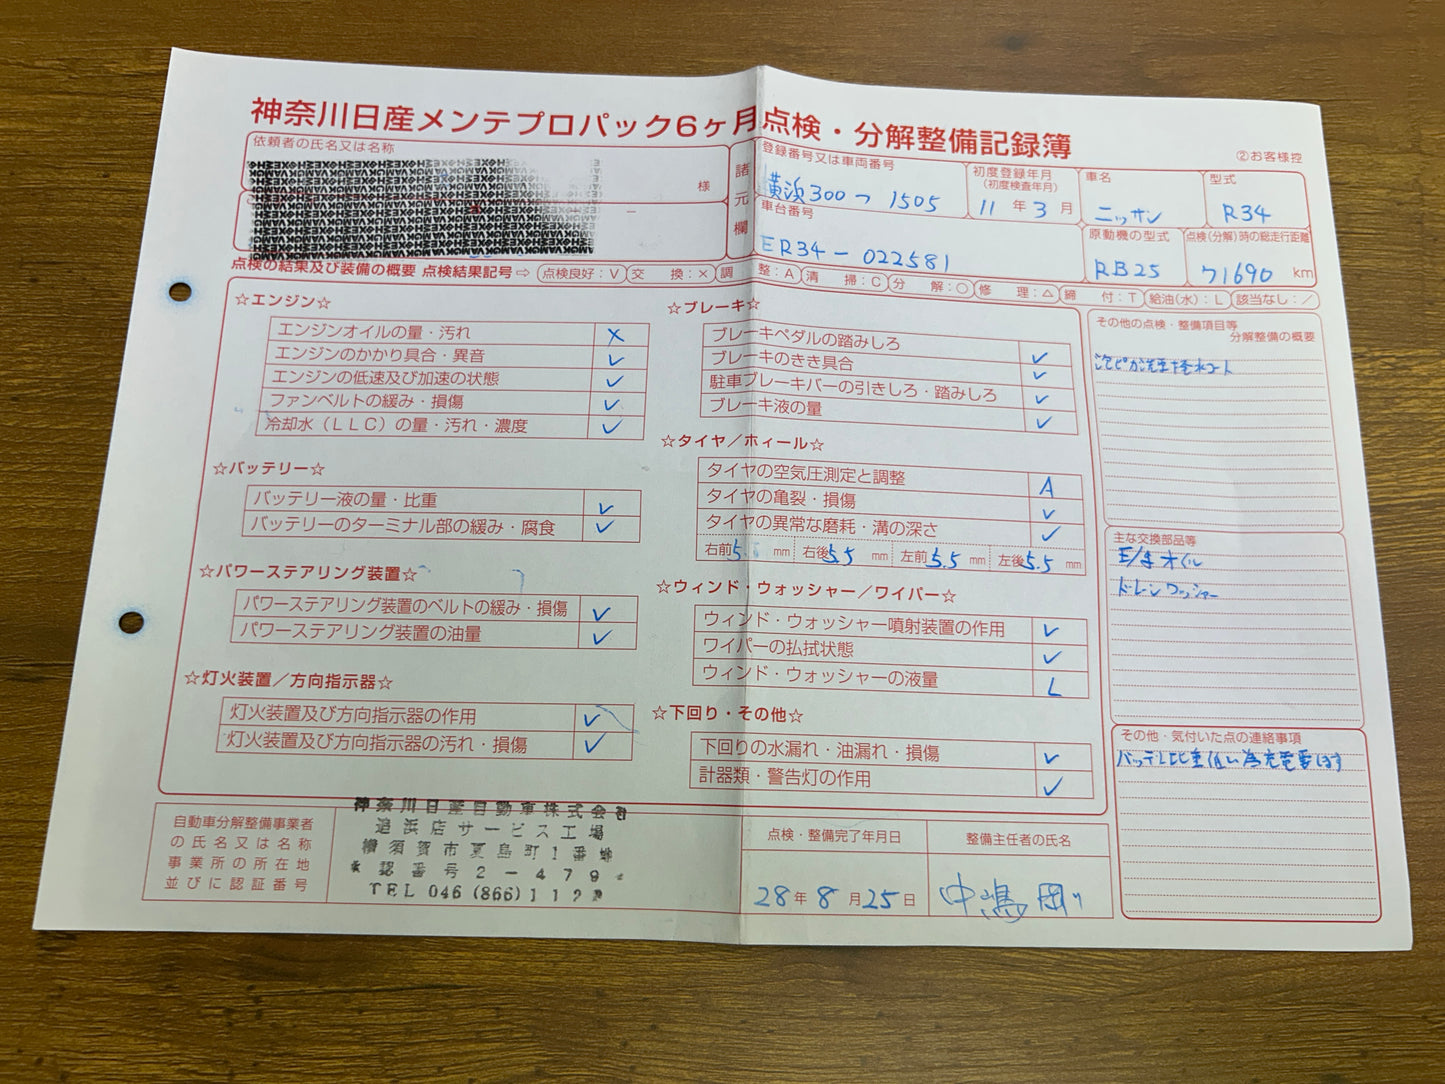 神奈川日産メンテプロパック6ヶ月点検・分解整備記録簿
②お客様控
依頼者の氏名又は名称
様
諸元欄
登録番号又は車両番号
横浜300つ1505
初度登録年月
(初度検査年月)
11年3月
車名
ニッサン
型式
R34
車台番号
ER34-022581
原動機の型式
RB25
点検(分解)時の総走行距離
71690km
点検の結果及び装備の概要 点検結果記号⇨ 点検良好:V 交換:× 調整:A 清掃:C 分解:○ 修理:△ 締付:T 給油(水):L 該当なし:／
☆エンジン☆
エンジンオイルの量・汚れ X
エンジンのかかり具合・異音 ✓
エンジンの低速及び加速の状態 ✓
ファンベルトの緩み・損傷 ✓
冷却水(LLC)の量・汚れ・濃度 ✓
☆バッテリー☆
バッテリー液の量・比重 ✓
バッテリーのターミナル部の緩み・腐食 ✓
☆パワーステアリング装置☆
パワーステアリング装置のベルトの緩み・損傷 ✓
パワーステアリング装置の油量 ✓
☆灯火装置／方向指示器☆
灯火装置及び方向指示器の作用 ✓
灯火装置及び方向指示器の汚れ・損傷 ✓
☆ブレーキ☆
ブレーキペダルの踏みしろ ✓
ブレーキのきき具合 ✓
駐車ブレーキバーの引きしろ・踏みしろ ✓
ブレーキ液の量 ✓
☆タイヤ／ホィール☆
タイヤの空気圧測定と調整 A
タイヤの亀裂・損傷 ✓
タイヤの異常な磨耗・溝の深さ ✓
右前5.5mm 右後5.5mm 左前5.5mm 左後5.5mm
☆ウィンド・ウォッシャー／ワイパー☆
ウィンド・ウォッシャー噴射装置の作用 ✓
ワイパーの払拭状態 ✓
ウィンド・ウォッシャーの液量 L
☆下回り・その他☆
下回りの水漏れ・油漏れ・損傷 ✓
計器類・警告灯の作用 ✓
その他の点検・整備項目等
分解整備の概要
主な交換部品等
オイル
ドレンワッシャー
その他・気付いた点の連絡事項
バッテリ比重低い為充電要します
自動車分解整備事業者
の氏名又は名称
事業所の所在地
並びに認証番号
神奈川日産自動車株式会社
追浜店サービス工場
横須賀市夏島町1番地
認番号2-479
TEL 046(866)112
点検・整備完了年月日
28年8月25日
整備主任者の氏名
中嶋